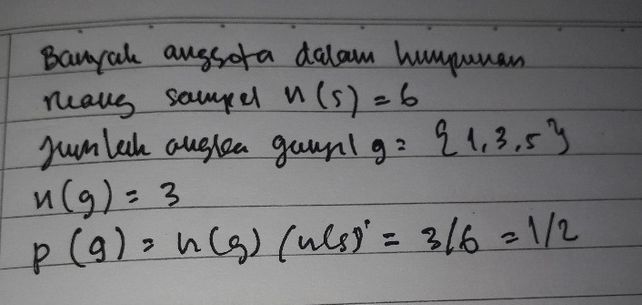 Banyak anggota dalam humpunan
ruang sampel n(s) = 6
Jumlah angka ganjil g = {1, 3, 5}
n(g) = 3
p(g) = n(g) (n(s) = 3/6 = 1/2